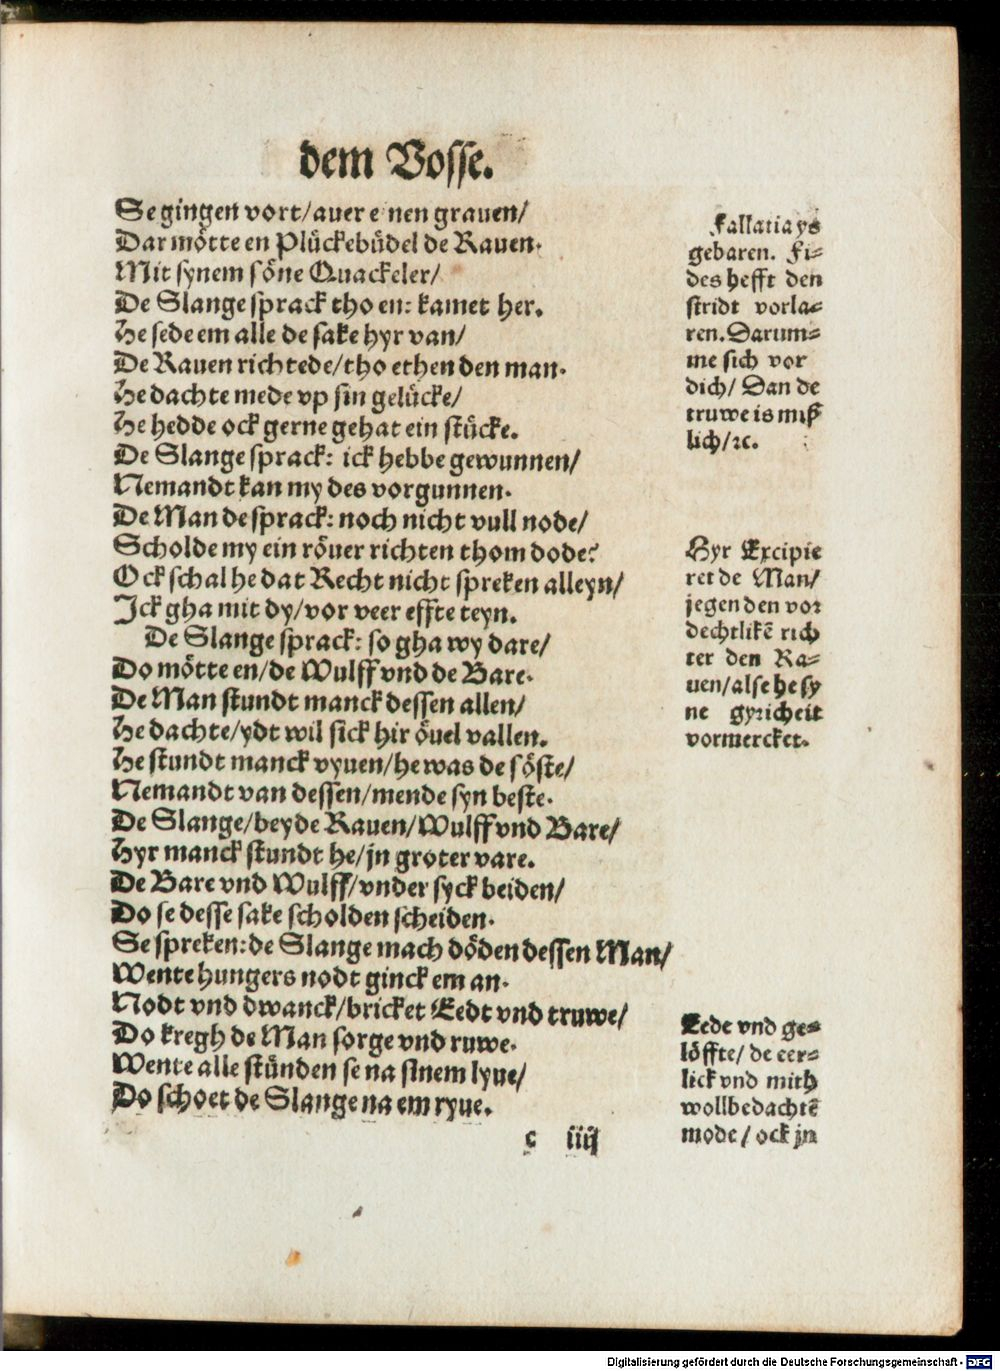 dem Vosse.
Se gingen vort/auer e nen grauen/
Dar mötte en Plückebüdel de Rauen.
Mit synem söne Quackeler/
De Slange sprack tho en: kamet her.
He sede em alle de sake hyr van/
De Rauen richtede/tho ethen den man.
He dachte mede vp sin gelücke/
He hedde ock gerne gehat ein stücke.
De Slange sprack: ick hebbe gewunnen/
Nemandt kan my des vorgunnen.
De Man de sprack: noch nicht vull node/
Scholde my ein röuer richten thom dode?
Ock schal he dat Recht nicht spreken alleyn/
Ick gha mit dy/vor veer effte teyn.
De Slange sprack: so gha wy dare/
Do mötte en/de Wulff vnd de Bare.
De Man stundt manck dessen allen/
He dachte/ydt wil sick hir öuel vallen.
He stundt manck vyuen/he was de söste/
Nemandt van dessen/mende syn beste.
De Slange/beyde Rauen/Wulff vnd Bare/
Hyr manck stundt he/jn groter vare.
De Bare vnd Wulff/vnder syck beiden/
Do se desse sake scholden scheiden.
Se spreken: de Slange mach döden dessen Man/
Wente hungers nodt ginck em an.
Nodt vnd dwanck/bricket Eedt vnd truwe/
Do kregh de Man sorge vnd ruwe.
Wente alle stünden se na sinem lyue/
Do schoet de Slange na em ryue.
c iiij
Fallatia ys
gebaren. Fi⸗
des hefft den
stridt vorla⸗
ren. Darum⸗
me sich vor
dich/ Dan de
truwe is miß
lich/ꝛc.
Hyr Excipie
ret de Man/
jegen den vor
dechtlikē rich
ter den Ra⸗
uen/alse he sy
ne gyricheit
vormercket.
Eede vnd ge⸗
löffte/ de eer⸗
lick vnd mith
wollbedachtē
mode/ ock jn
Digitalisierung gefördert durch die Deutsche Forschungsgemeinschaft - DFG